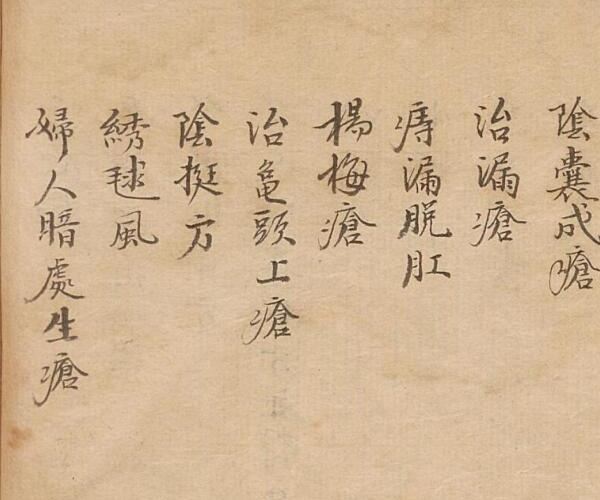 陰囊成瘡
治漏瘡
痔漏脱肛
楊梅瘡
治龟頭上瘡
陰挺方
綉毬風
婦人暗處生瘡